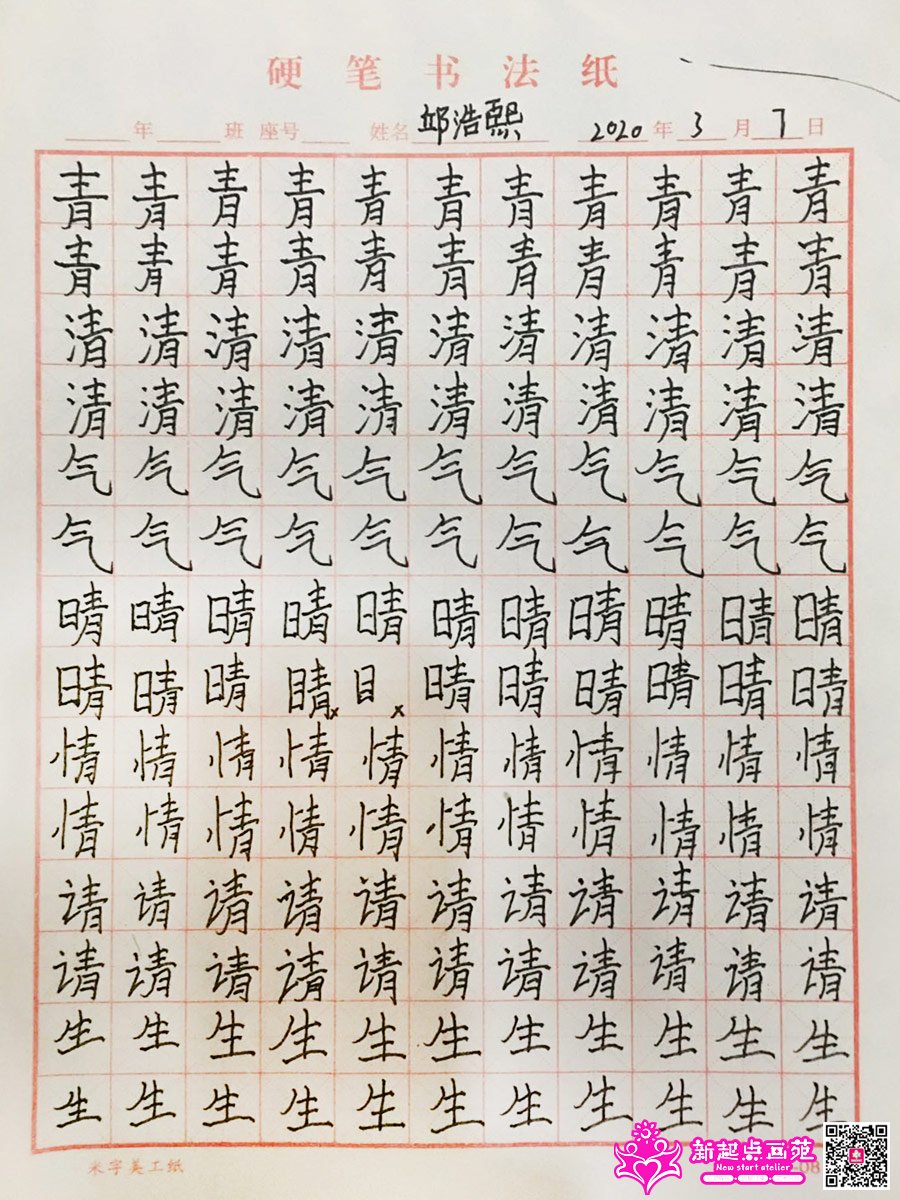 硬笔书法纸
年 班 座号 姓名 邱浩熙 2020 年 3 月 7 日
青青青青青青青青青青青
青青青青青青青青青青青
清清清清清清清清清清清
清清清清清清清清清清清
气气气气气气气气气气气
气气气气气气气气气气气
晴晴晴晴晴晴晴晴晴晴晴
晴晴晴睛目晴晴晴晴晴晴
情情情情情情情情情情情
情情情情情情情情情情情
请请请请请请请请请请请
请请请请请请请请请请请
生生生生生生生生生生生
生生生生生生生生生生生
米字美工纸
新起点画苑
New start atelier